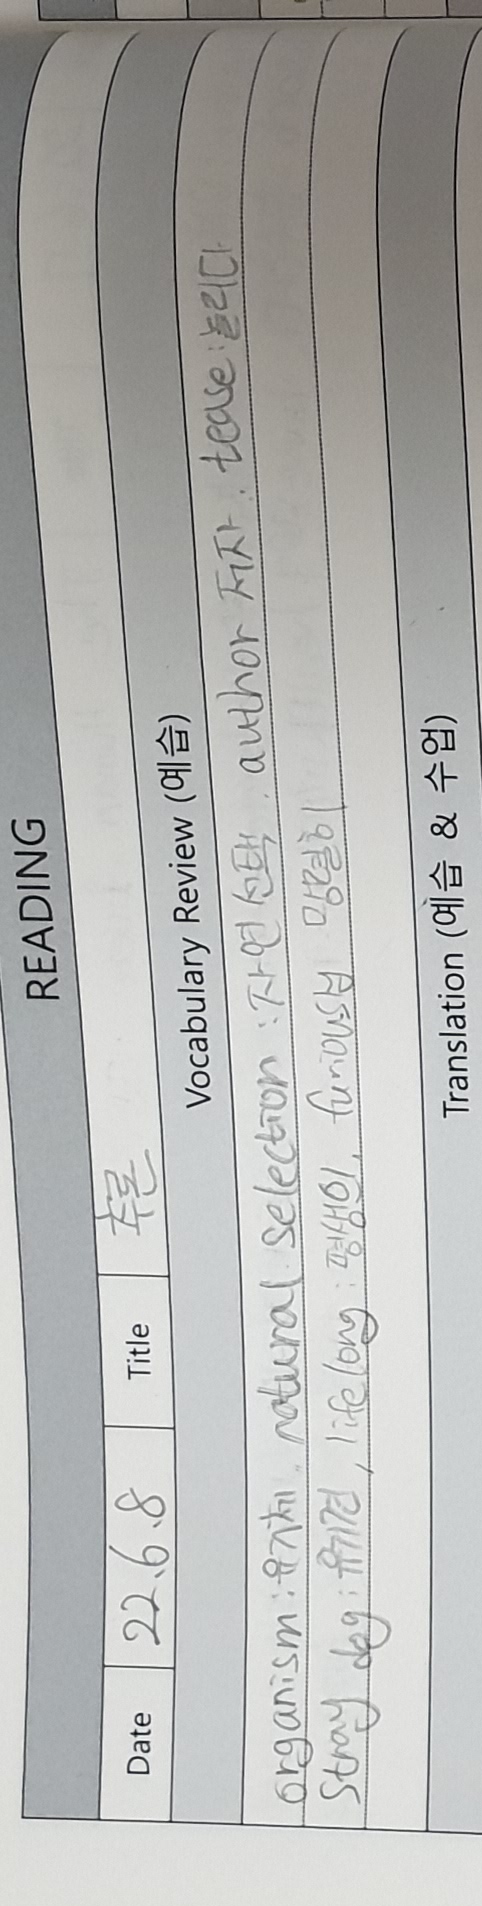 READING
Date 22.6.8 Title 추론
Vocabulary Review (예습)
organism : 유기체. natural selection : 자연선택. author 저자. tease : 놀리다
Stray dog : 유기견, lifelong : 평생의, furiously 맹렬히
Translation (예습 & 수업)